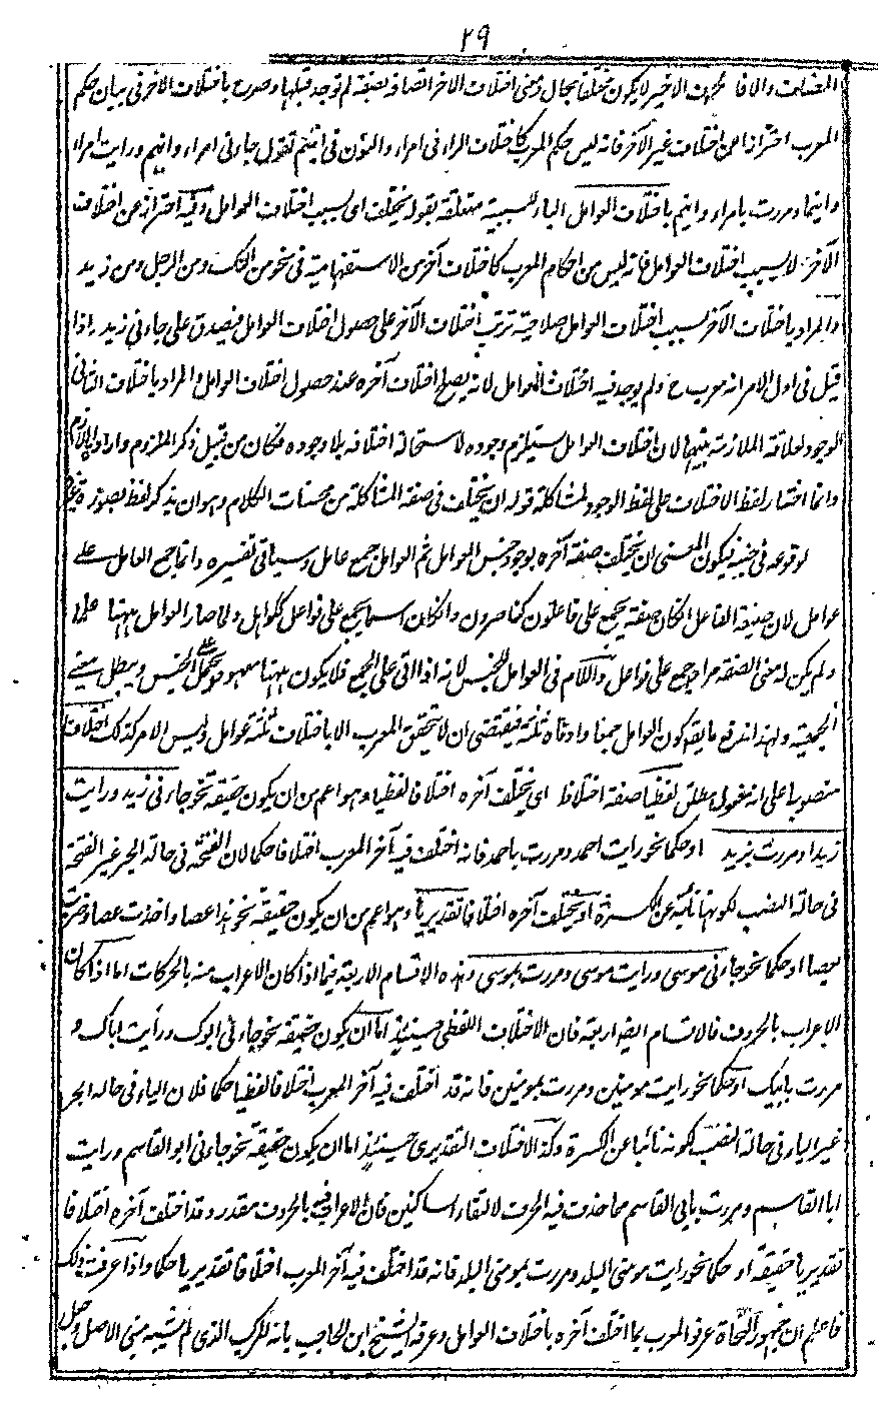 ٢٩
المضاف والا فا لجهت الاخير لا يكون مختلفا بحال ومعنى اختلاف الاخر اتصافه بصفة لم توجد قبلها وصرح باختلاف الآخر فى بيان حكم
المعرب احترازا عن اختلاف غير الآخر فانه ليس حكم المعرب كاختلاف الراء فى امرء والنون فى ابنم تقول جاءنى امرء وابنم ورايت امرء
وابنما ومررت بامرء وابنم باختلاف العوامل الباء للسببية متعلقة بقوله يختلف اى بسبب اختلاف العوامل وفيه احتراز عن اختلاف
الآخر لا بسبب اختلاف العوامل فانه ليس من احكام المعرب كاختلاف آخر من الاستفهامية فى نحو من انك ومن الرجل ومن زيد
والمراد باختلاف الآخر بسبب اختلاف العوامل صلاحية ترتب اختلاف الآخر على حصول اختلاف العوامل فيصدق على جاءنى زيد اذا
قيل فى اول الامر انه معرب ح ولم يوجد فيه اختلاف العوامل لانه يصلح اختلاف آخره عند حصول اختلاف العوامل والمراد باختلاف الثانى
الوجود لعلاقة الملازمة بينهما لان اختلاف العوامل يستلزم وجوده لاستحالة اختلافه بلا وجوده فكان من قبيل ذكر الملزوم وارادة اللازم
وانما اختار لفظ الاختلاف على لفظ الوجود لمشاكلة قوله ان يختلف فى صفة المشاكلة من محسنات الكلام وهو ان يذكر لفظ بصورة غيره
لوقوعه فى جنبه فيكون المعنى ان يختلف صفة آخره بوجود جنس العوامل ثم العوامل جمع عامل وسياتى تفسيره وانما جمع العامل على
عوامل لان صيغة الفاعل ان كان صفة يجمع على فاعلون كناصرون وان كان اسما يجمع على فواعل ككواهل ولما صار العوامل ههنا علما
ولم يكن له معنى الصفة مراد جمع على فواعل واللام فى العوامل للجنس لانه اذا اتى على الجمع فلا يكون ههنا معهود يحمل على الجنس ويبطل معنى
الجمعية ولهذا اندفع ما يقع كون العوامل جمعا وادناه ثلثة فيقتضى ان لا يتحقق المعرب الا باختلاف ثلثة عوامل وليس الامر كذلك اختلافا
منصوبا على انه مفعول مطلق لفظيا صفة اختلافا اى يختلف آخره اختلافا لفظيا وهو اعم من ان يكون حقيقة نحو جاءنى زيد ورايت
زيدا ومررت بزيد او حكما نحو رايت احمد ومررت باحمد فانه اختلف فيه آخر المعرب اختلافا حكما لان الفتحة فى حالة الجر غير الفتحة
فى حالة النصب لكونها نائبة عن الكسرة او يختلف آخره اختلافا تقديريا وهو اعم من ان يكون حقيقة نحو هذا عصا واخذت عصا وضربت
بعصا او حكما نحو جاءنى موسى ورايت موسى ومررت بموسى وهذه الاقسام الاربعة فيما اذا كان الاعراب منه بالحركات اما اذا كان
الاعراب بالحروف فالاقسام ايضا اربعة فان الاختلاف اللفظى حينئذ اما ان يكون حقيقة نحو جاءنى ابوك ورأيت اباك و
مررت بابيك او حكما نحو رايت مومنين ومررت بمومنين فانه قد اختلف فيه آخر المعرب اختلافا لفظيا حكما فلان الياء فى حالة الجر
غير الياء فى حالة النصب لكونه نائبا عن الكسرة وكذ الاختلاف التقديرى حينئذ اما ان يكون حقيقة نحو جاءنى ابو القاسم ورايت
ابا القاسم ومررت بابى القاسم مما حذف فيه الحرف لالتقاء الساكنين فان الاعراب فيه بالحروف مقدر وقد اختلف آخره اختلافا
تقديريا حقيقة او حكما نحو رايت مومنى البلد ومررت بمومنى البلد فانه قد اختلف فيه آخر المعرب اختلافا تقديريا حكما واذا عرفت ذلك
فاعلم ان جمهور النحاة عرفوا المعرب بما اختلف آخره باختلاف العوامل وعرفه الشيخ ابن الحاجب بانه المركب الذى لم يشبه مبنى الاصل وجعل